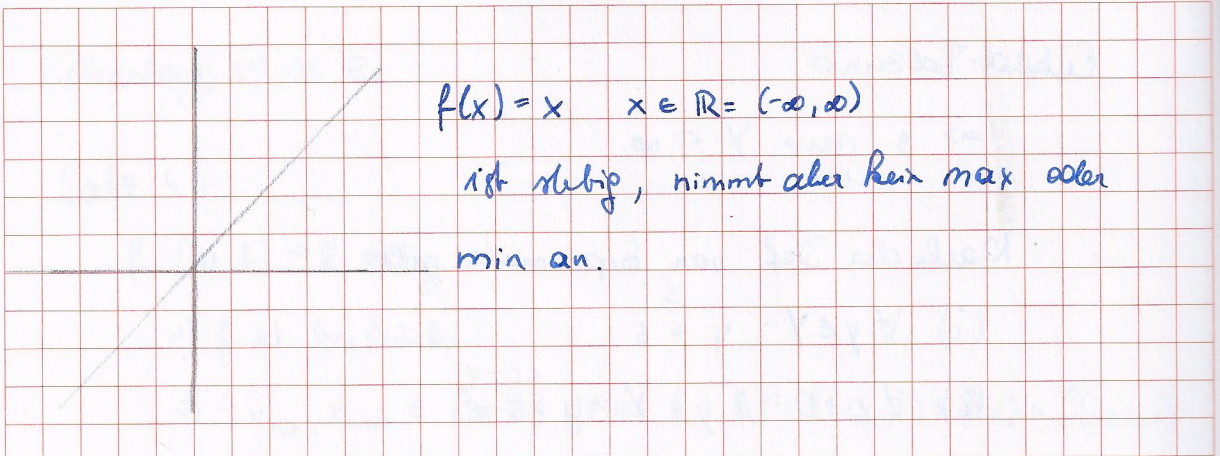 f(x) = x x ∈ ℝ = (-∞, ∞)
ist stetig, nimmt aber kein max oder
min an.